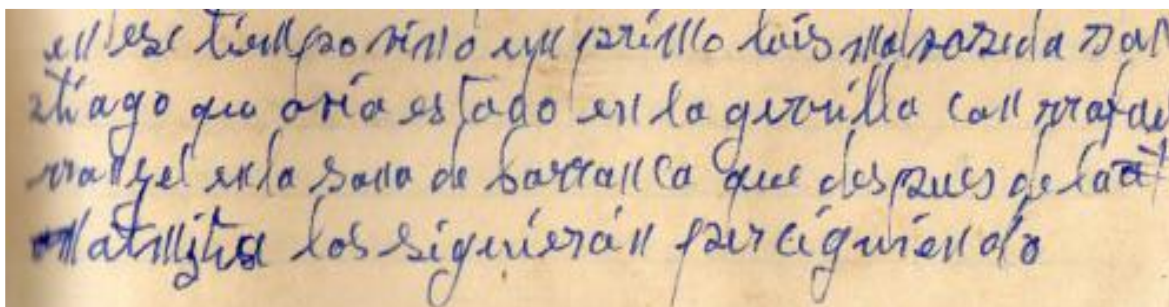 en ese tiempo vino un primo luis maroreda san
tiago que avia estado en la gerrilla con rrafael
rrangel en la sona de barranca que despues de la a
mnistia los siguierán perciguiendo